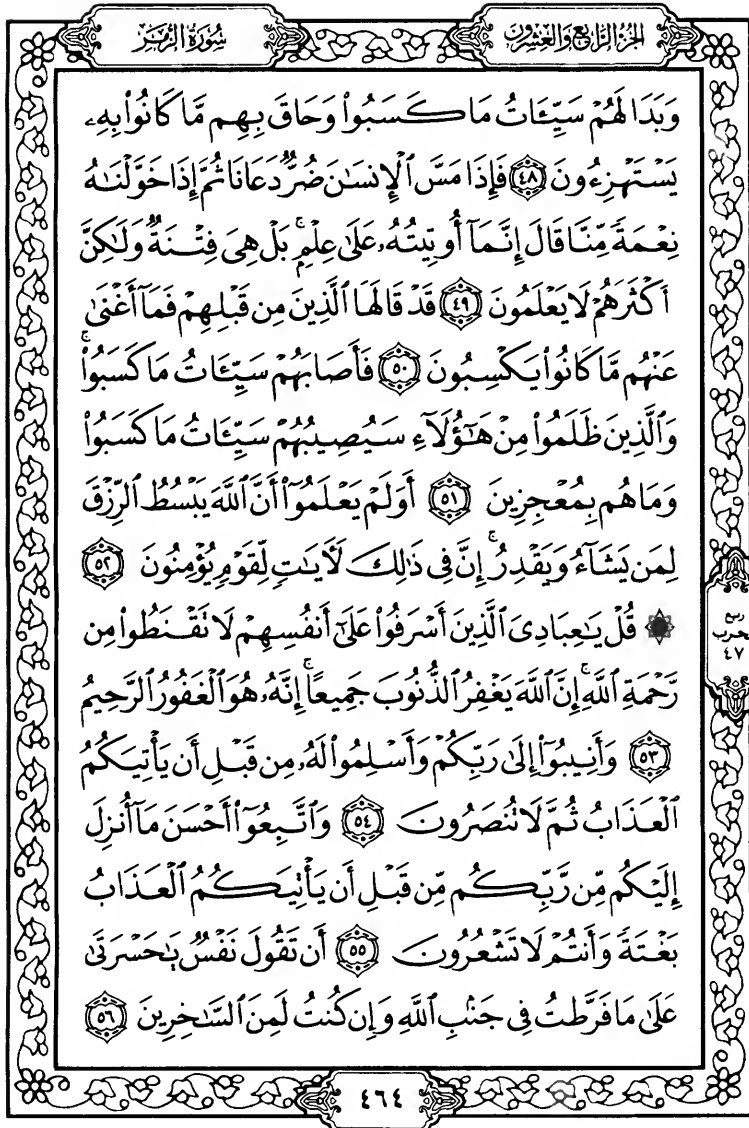 الجزء الرابع والعشرون
سورة الزمر
وَبَدَا لَهُمْ سَيِّـَٔاتُ مَا كَسَبُوا۟ وَحَاقَ بِهِم مَّا كَانُوا۟ بِهِۦ
يَسْتَهْزِءُونَ ٤٨ فَإِذَا مَسَّ ٱلْإِنسَـٰنَ ضُرٌّ دَعَانَا ثُمَّ إِذَا خَوَّلْنَـٰهُ
نِعْمَةً مِّنَّا قَالَ إِنَّمَآ أُوتِيتُهُۥ عَلَىٰ عِلْمٍۭ ۚ بَلْ هِىَ فِتْنَةٌ وَلَـٰكِنَّ
أَكْثَرَهُمْ لَا يَعْلَمُونَ ٤٩ قَدْ قَالَهَا ٱلَّذِينَ مِن قَبْلِهِمْ فَمَآ أَغْنَىٰ
عَنْهُم مَّا كَانُوا۟ يَكْسِبُونَ ٥٠ فَأَصَابَهُمْ سَيِّـَٔاتُ مَا كَسَبُوا۟ ۚ
وَٱلَّذِينَ ظَلَمُوا۟ مِنْ هَـٰٓؤُلَآءِ سَيُصِيبُهُمْ سَيِّـَٔاتُ مَا كَسَبُوا۟
وَمَا هُم بِمُعْجِزِينَ ٥١ أَوَلَمْ يَعْلَمُوٓا۟ أَنَّ ٱللَّهَ يَبْسُطُ ٱلرِّزْقَ
لِمَن يَشَآءُ وَيَقْدِرُ ۚ إِنَّ فِى ذَٰلِكَ لَـَٔايَـٰتٍ لِّقَوْمٍ يُؤْمِنُونَ ٥٢
۞ قُلْ يَـٰعِبَادِىَ ٱلَّذِينَ أَسْرَفُوا۟ عَلَىٰٓ أَنفُسِهِمْ لَا تَقْنَطُوا۟ مِن
رَّحْمَةِ ٱللَّهِ ۚ إِنَّ ٱللَّهَ يَغْفِرُ ٱلذُّنُوبَ جَمِيعًا ۚ إِنَّهُۥ هُوَ ٱلْغَفُورُ ٱلرَّحِيمُ
٥٣ وَأَنِيبُوٓا۟ إِلَىٰ رَبِّكُمْ وَأَسْلِمُوا۟ لَهُۥ مِن قَبْلِ أَن يَأْتِيَكُمُ
ٱلْعَذَابُ ثُمَّ لَا تُنصَرُونَ ٥٤ وَٱتَّبِعُوٓا۟ أَحْسَنَ مَآ أُنزِلَ
إِلَيْكُم مِّن رَّبِّكُم مِّن قَبْلِ أَن يَأْتِيَكُمُ ٱلْعَذَابُ
بَغْتَةً وَأَنتُمْ لَا تَشْعُرُونَ ٥٥ أَن تَقُولَ نَفْسٌ يَـٰحَسْرَتَىٰ
عَلَىٰ مَا فَرَّطتُ فِى جَنۢبِ ٱللَّهِ وَإِن كُنتُ لَمِنَ ٱلسَّـٰخِرِينَ ٥٦
ربع
الحزب
٤٧
٤٦٤